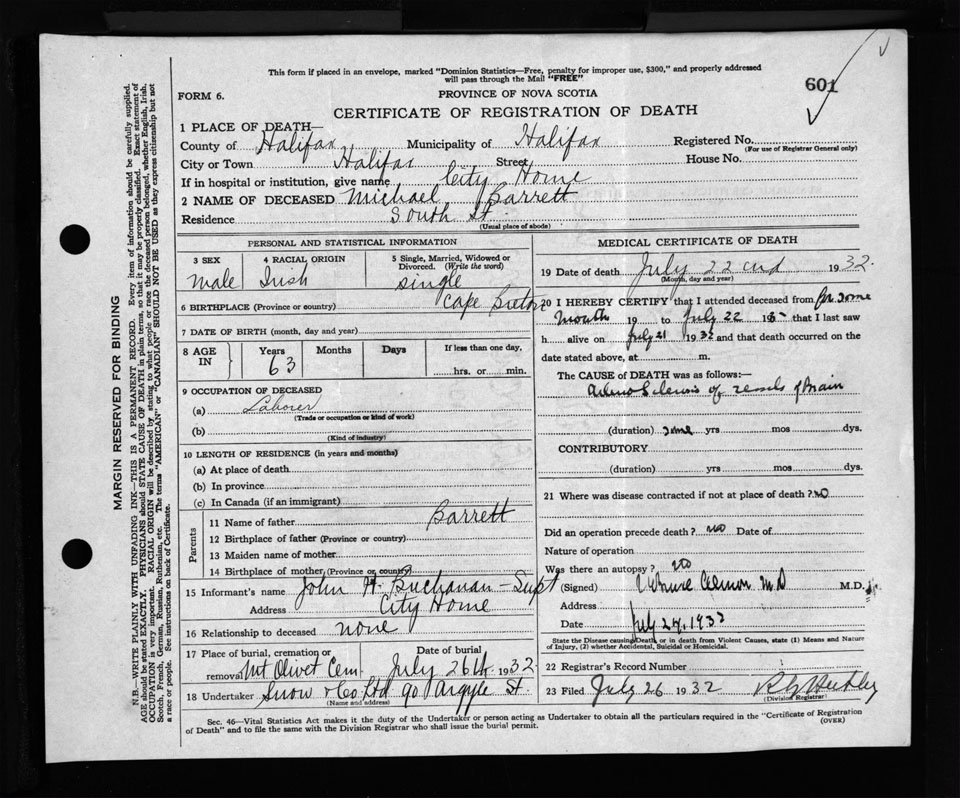 This form if placed in an envelope, marked "Dominion Statistics—Free, penalty for improper use, $300," and properly addressed
will pass through the Mail "FREE"
FORM 6.
PROVINCE OF NOVA SCOTIA
601
CERTIFICATE OF REGISTRATION OF DEATH
1 PLACE OF DEATH—
County of Halifax Municipality of Halifax Registered No.
(For use of Registrar General only)
City or Town Halifax Street House No.
If in hospital or institution, give name City Home
2 NAME OF DECEASED Michael Barrett
Residence South St
(Usual place of abode)
PERSONAL AND STATISTICAL INFORMATION
3 SEX 4 RACIAL ORIGIN 5 Single, Married, Widowed or Divorced. (Write the word)
Male Irish Single
6 BIRTHPLACE (Province or country) Cape Breton
7 DATE OF BIRTH (month, day and year)
8 AGE IN Years Months Days If less than one day,
63 hrs. or min.
9 OCCUPATION OF DECEASED
(a) Laborer
(Trade or occupation or kind of work)
(b)
(Kind of industry)
10 LENGTH OF RESIDENCE (in years and months)
(a) At place of death
(b) In province
(c) In Canada (if an immigrant)
Parents
11 Name of father Barrett
12 Birthplace of father (Province or country)
13 Maiden name of mother
14 Birthplace of mother (Province or country)
15 Informant's name John H. Buchanan - Supt
Address City Home
16 Relationship to deceased none
17 Place of burial, cremation or removal Date of burial
Mt Olivet Cem. July 26th 1932
18 Undertaker Snow & Co Ltd 90 Argyle St.
(Name and address)
MEDICAL CERTIFICATE OF DEATH
19 Date of death July 22nd 1932.
(Month, day and year)
20 I HEREBY CERTIFY that I attended deceased from for some
Months 19 to July 22 193 that I last saw
h alive on July 21 1932 and that death occurred on the
date stated above, at m.
The CAUSE OF DEATH was as follows:—
of vessels of Brain
(duration) some yrs mos dys.
CONTRIBUTORY
(duration) yrs mos dys.
21 Where was disease contracted if not at place of death? No
Did an operation precede death? No Date of
Nature of operation
Was there an autopsy? No
(Signed) M.D. M.D.
Address
Date July 24, 1932
State the Disease causing Death, or in death from Violent Causes, state (1) Means and Nature
of Injury, (2) whether Accidental, Suicidal or Homicidal.
22 Registrar's Record Number
23 Filed July 26 1932
(Division Registrar)
Sec. 46—Vital Statistics Act makes it the duty of the Undertaker or person acting as Undertaker to obtain all the particulars required in the "Certificate of Registration
of Death" and to file the same with the Division Registrar who shall issue the burial permit.
(OVER)
MARGIN RESERVED FOR BINDING
N.B.—WRITE PLAINLY WITH UNFADING INK—THIS IS A PERMANENT RECORD. Every item of information should be carefully supplied.
AGE should be stated EXACTLY. PHYSICIANS should STATE CAUSE OF DEATH in plain terms, so that it may be properly classified. Exact statement of
OCCUPATION is very important. RACIAL ORIGIN will be described by stating to what people or race the deceased person belonged, whether English, Irish,
Scotch, French, German, Russian, Ruthenian, etc. The terms "AMERICAN" or "CANADIAN" SHOULD NOT BE USED as they express citizenship but not
a race or people. See instructions on back of Certificate.